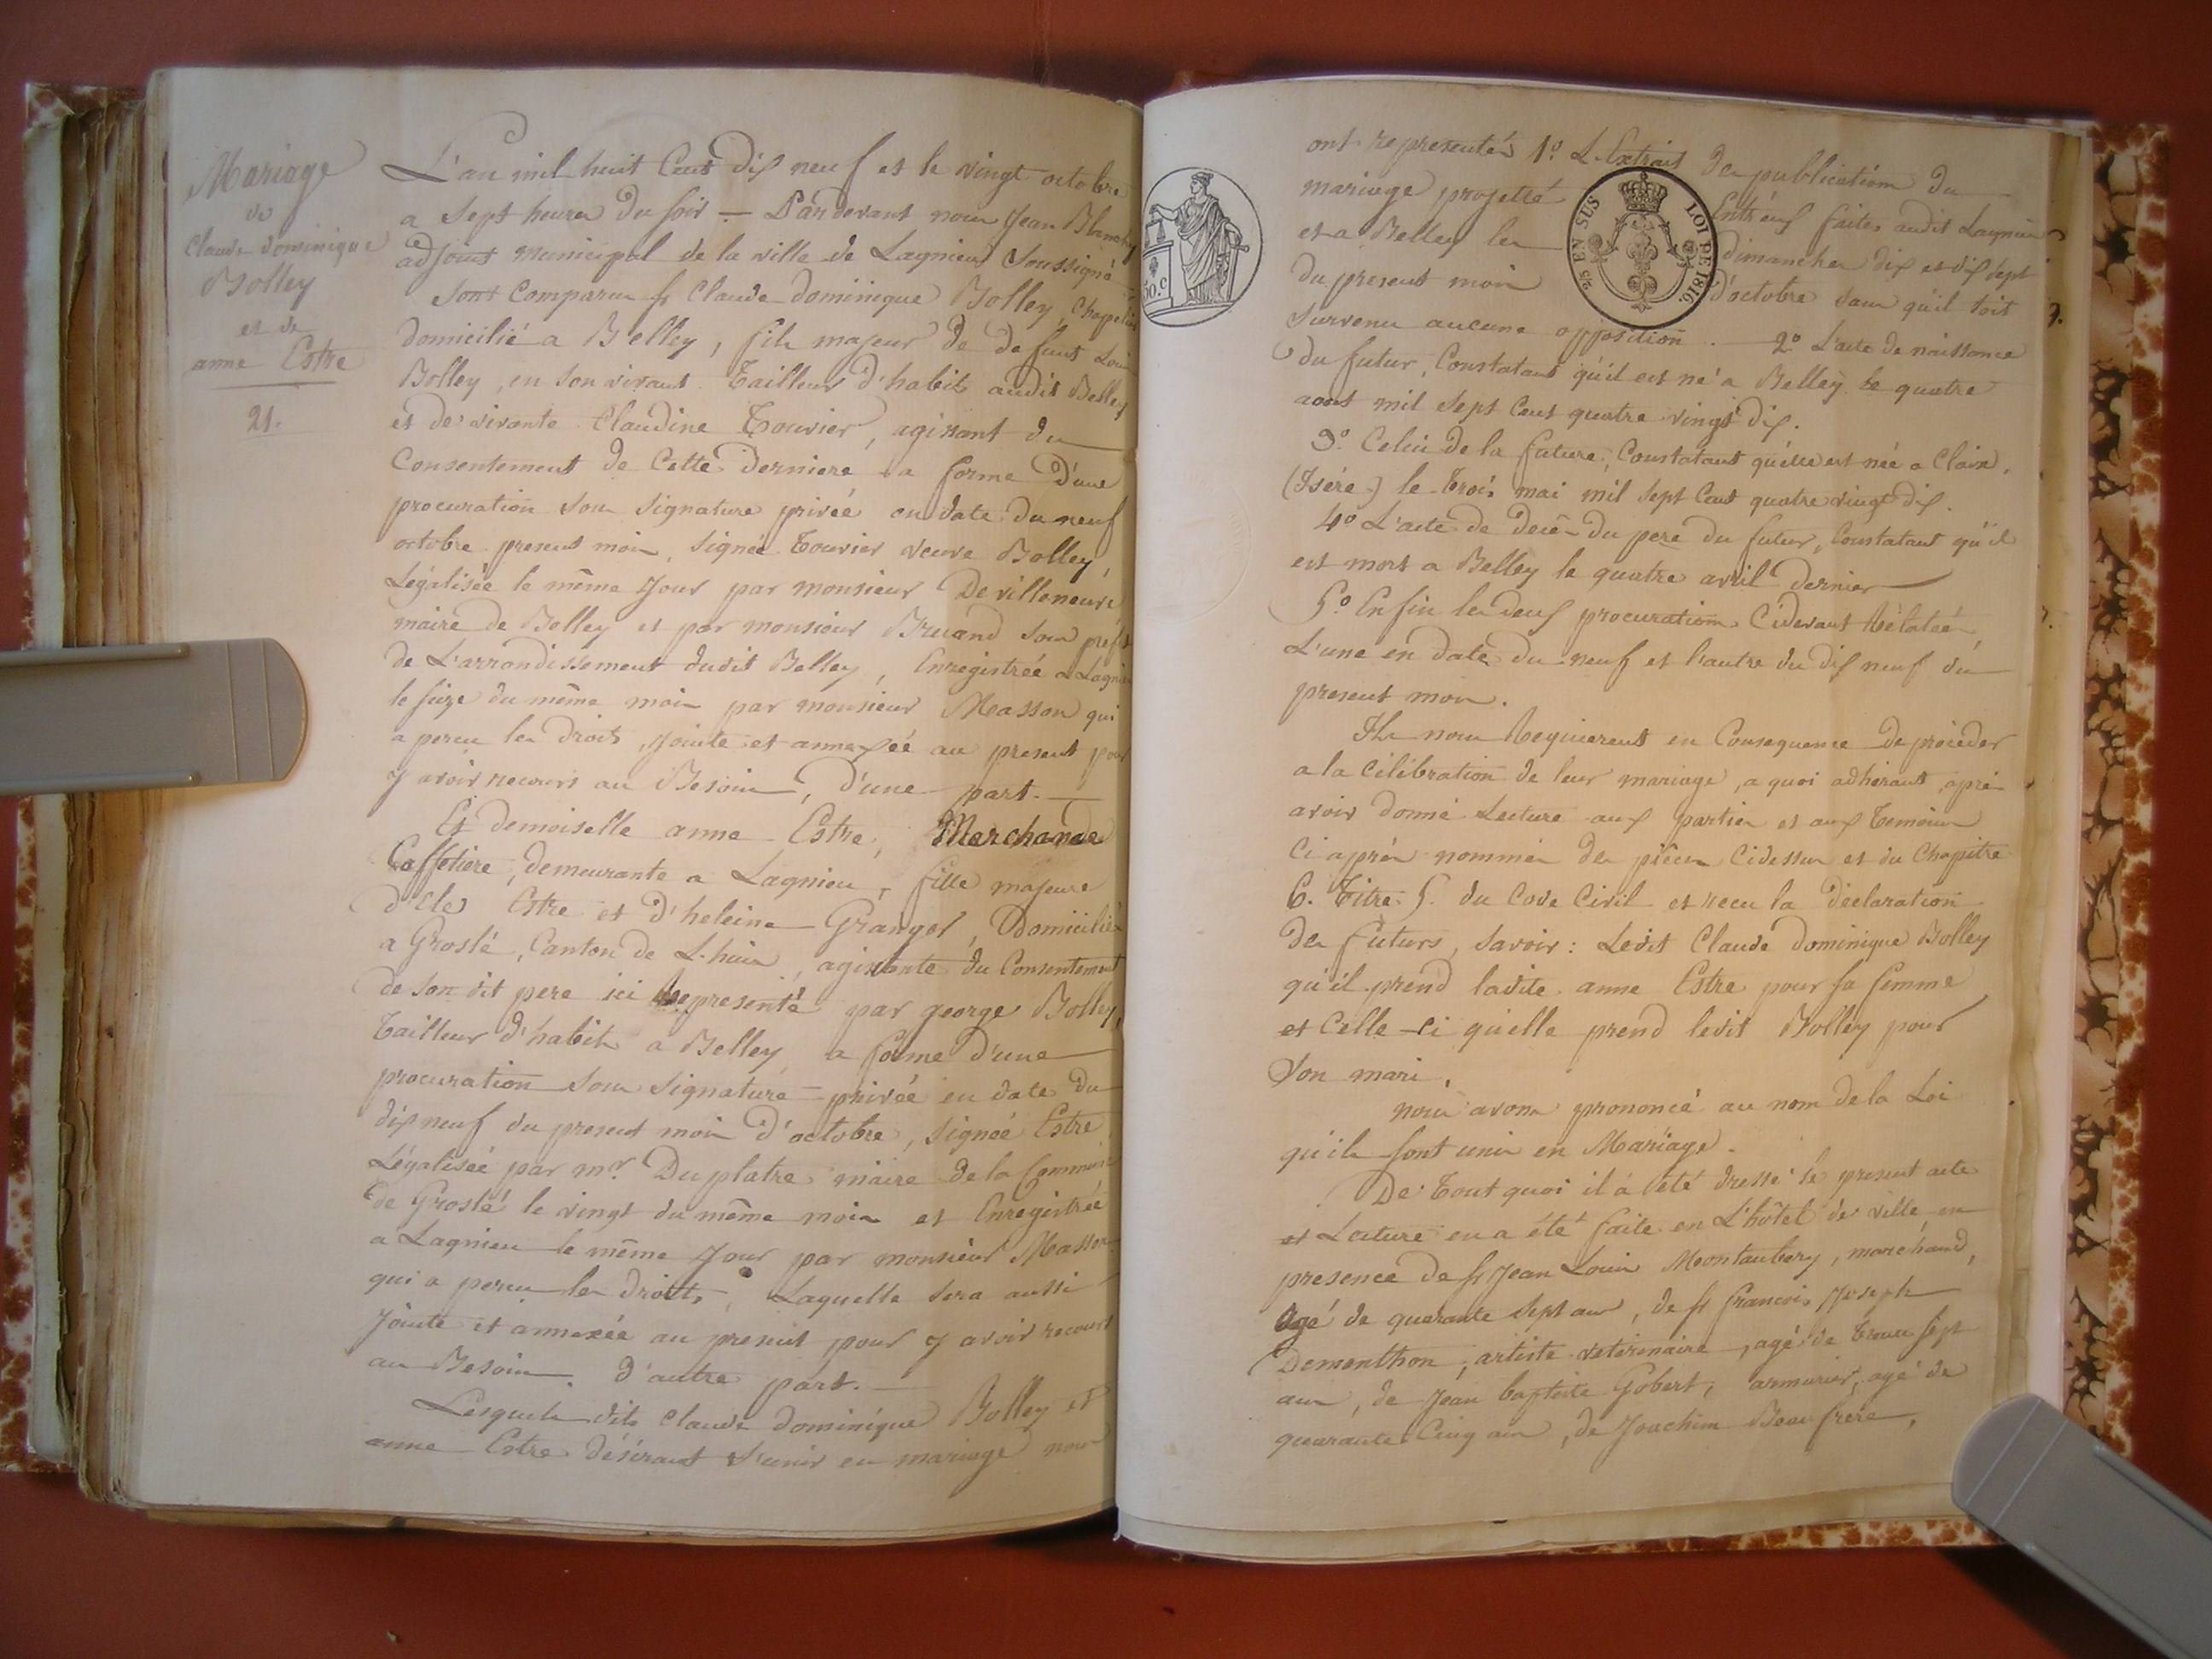 Mariage
de
Claude dominique
Bolley
et de
anne Estre
21.
L'an mil huit Cent dix neuf et le vingt octobre
a Sept heures du soir — Pardevant nous Jean Blanchy
adjoint municipal de la ville de Lagnieu Soussigné
Sont Comparus sr Claude dominique Bolley, Chapelier
domicilié a Belley, fils majeur de defunt Louis
Bolley, en son vivant Tailleur d'habits audit Belley
et de vivante Claudine Touvier, agissant du
Consentement de Cette derniere a forme d'une
procuration sous signature privée en date du neuf
octobre present mois, signée Touvier veuve Bolley,
Légalisée le même Jour par monsieur De villeneuve
maire de Belley et par monsieur Bruand sous prefet
de L'arrondissement dudit Belley, Enregistrée a Lagnieu
le seize du même mois par monsieur Masson qui
a percu les droits, jointe et annexée au present pour
y avoir recours au Besoin, d'une part.—
Et demoiselle anne Estre, Marchande
Caffetiere, demeurante a Lagnieu, fille majeure
Estre et d'heleine Granger, Domiciliés
a Groslé, Canton de L-huis, agissante du Consentement
de son dit pere ici representé par george Bolley,
Tailleur d'habits a Belley a forme d'une
procuration sous signature privée en date du
dix neuf du present mois d'octobre, signée Estre
Légalisée par mr. Duplatre maire de la Commune
de Groslé le vingt du même mois et Enregistrée
a Lagnieu le même Jour par monsieur Masson
qui a percu les droits, Laquelle sera aussi
jointe et annexée au present pour y avoir recours
au Besoin. d'autre part.—
Lesquels dits Claude dominique Bolley et
anne Estre désirant s'unir en mariage nous
ont representés 1o. L'Extrait des publications du
mariage projetté Entr'eux faites audit Lagnieu
et a Belley les dimanches dix et dix sept
du present mois d'octobre sans qu'il soit
survenu aucune opposition. — 2o L'acte de naissance
du futur, Constatant qu'il est né a Belley le quatre
aout mil sept Cent quatre vingt dix.
3o. Celui de la future, Constatant qu'elle est née a Claix,
(Isére) le trois mai mil sept Cent quatre vingt dix.
4o L'acte de decès du pere du futur, Constatant qu'il
est mort a Belley le quatre avril dernier
5o Enfin les deux procurations Cidevant rélatées,
L'une en date du neuf et l'autre du dix neuf du
present mois.
Ils nous requierent en Consequence de proceder
a la célébration de leur mariage, a quoi adhérant, après
avoir donné Lecture aux parties et aux temoins
Ci après nommés des pièces Cidessus et du Chapitre
6. Titre 5. du Code Civil et recu la déclaration
des futurs, savoir: Ledit Claude Dominique Bolley
qu'il prend ladite anne Estre pour sa femme
et Celle-ci qu'elle prend ledit Bolley pour
son mari,
nous avons prononcé au nom de la Loi
qu'ils sont unis en Mariage.
De tout quoi il a été dressé le present acte
et Lecture en a été faite en L'hôtel de ville en
presence de sr Jean Louis Montaubery, marchand,
agé de quarante sept ans, de sr francois Joseph
Dementhon, artiste veterinaire, agé de trente sept
ans, de Jean baptiste Gobert, armurier, agé de
quarante Cinq ans, de Joachim Beaufrere,
50.C
2/5 EN SUS LOI DE 1816.